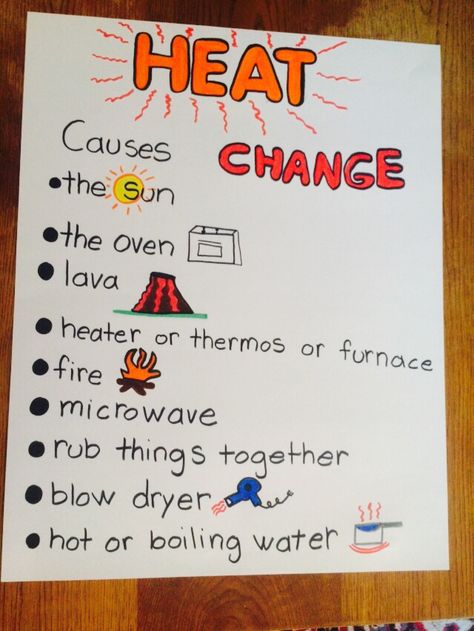 HEAT
Causes CHANGE
•the sun
•the oven
• lava
• heater or thermos or furnace
•fire
•microwave
•rub things together
•blow dryer
•hot or boiling water